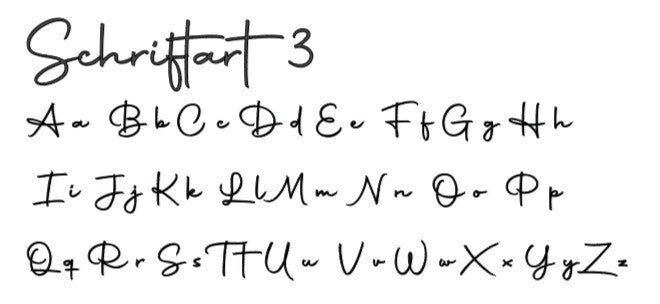 Schriftart 3
A a B b C c D d E e F f G g H h
I i J j K k L l M m N n O o P p
Q q R r S s T t U u V v W w X x Y y Z z